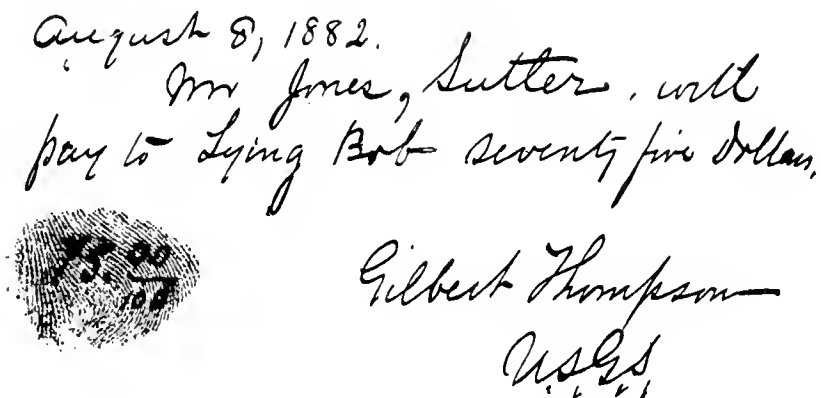 August 8, 1882.
Mr Jones, Sutler, will
pay to Lying Bob seventy five Dollars.
75.00/100
Gilbert Thompson
U.S.G.S.